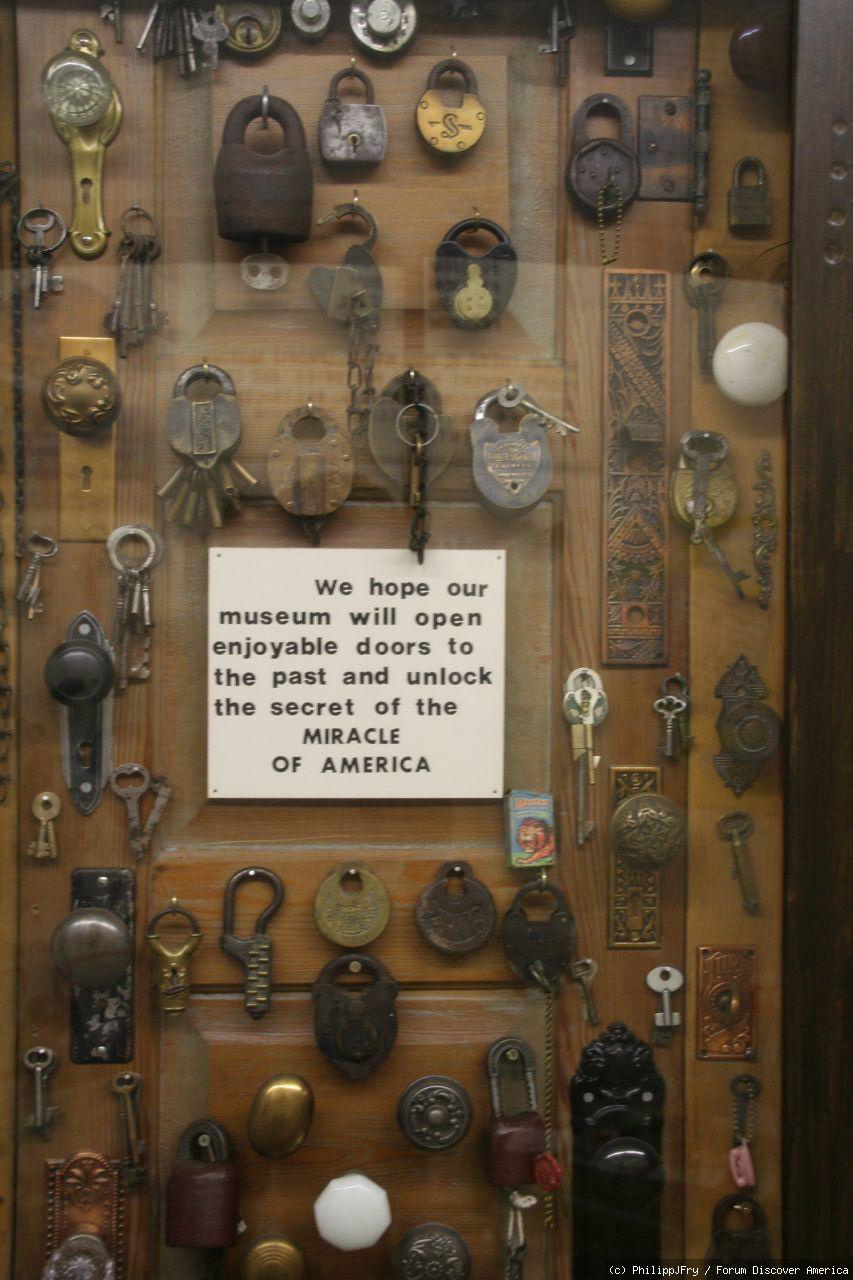 We hope our
museum will open
enjoyable doors to
the past and unlock
the secret of the
MIRACLE
OF AMERICA
(c) PhilippJFry / Forum Discover America